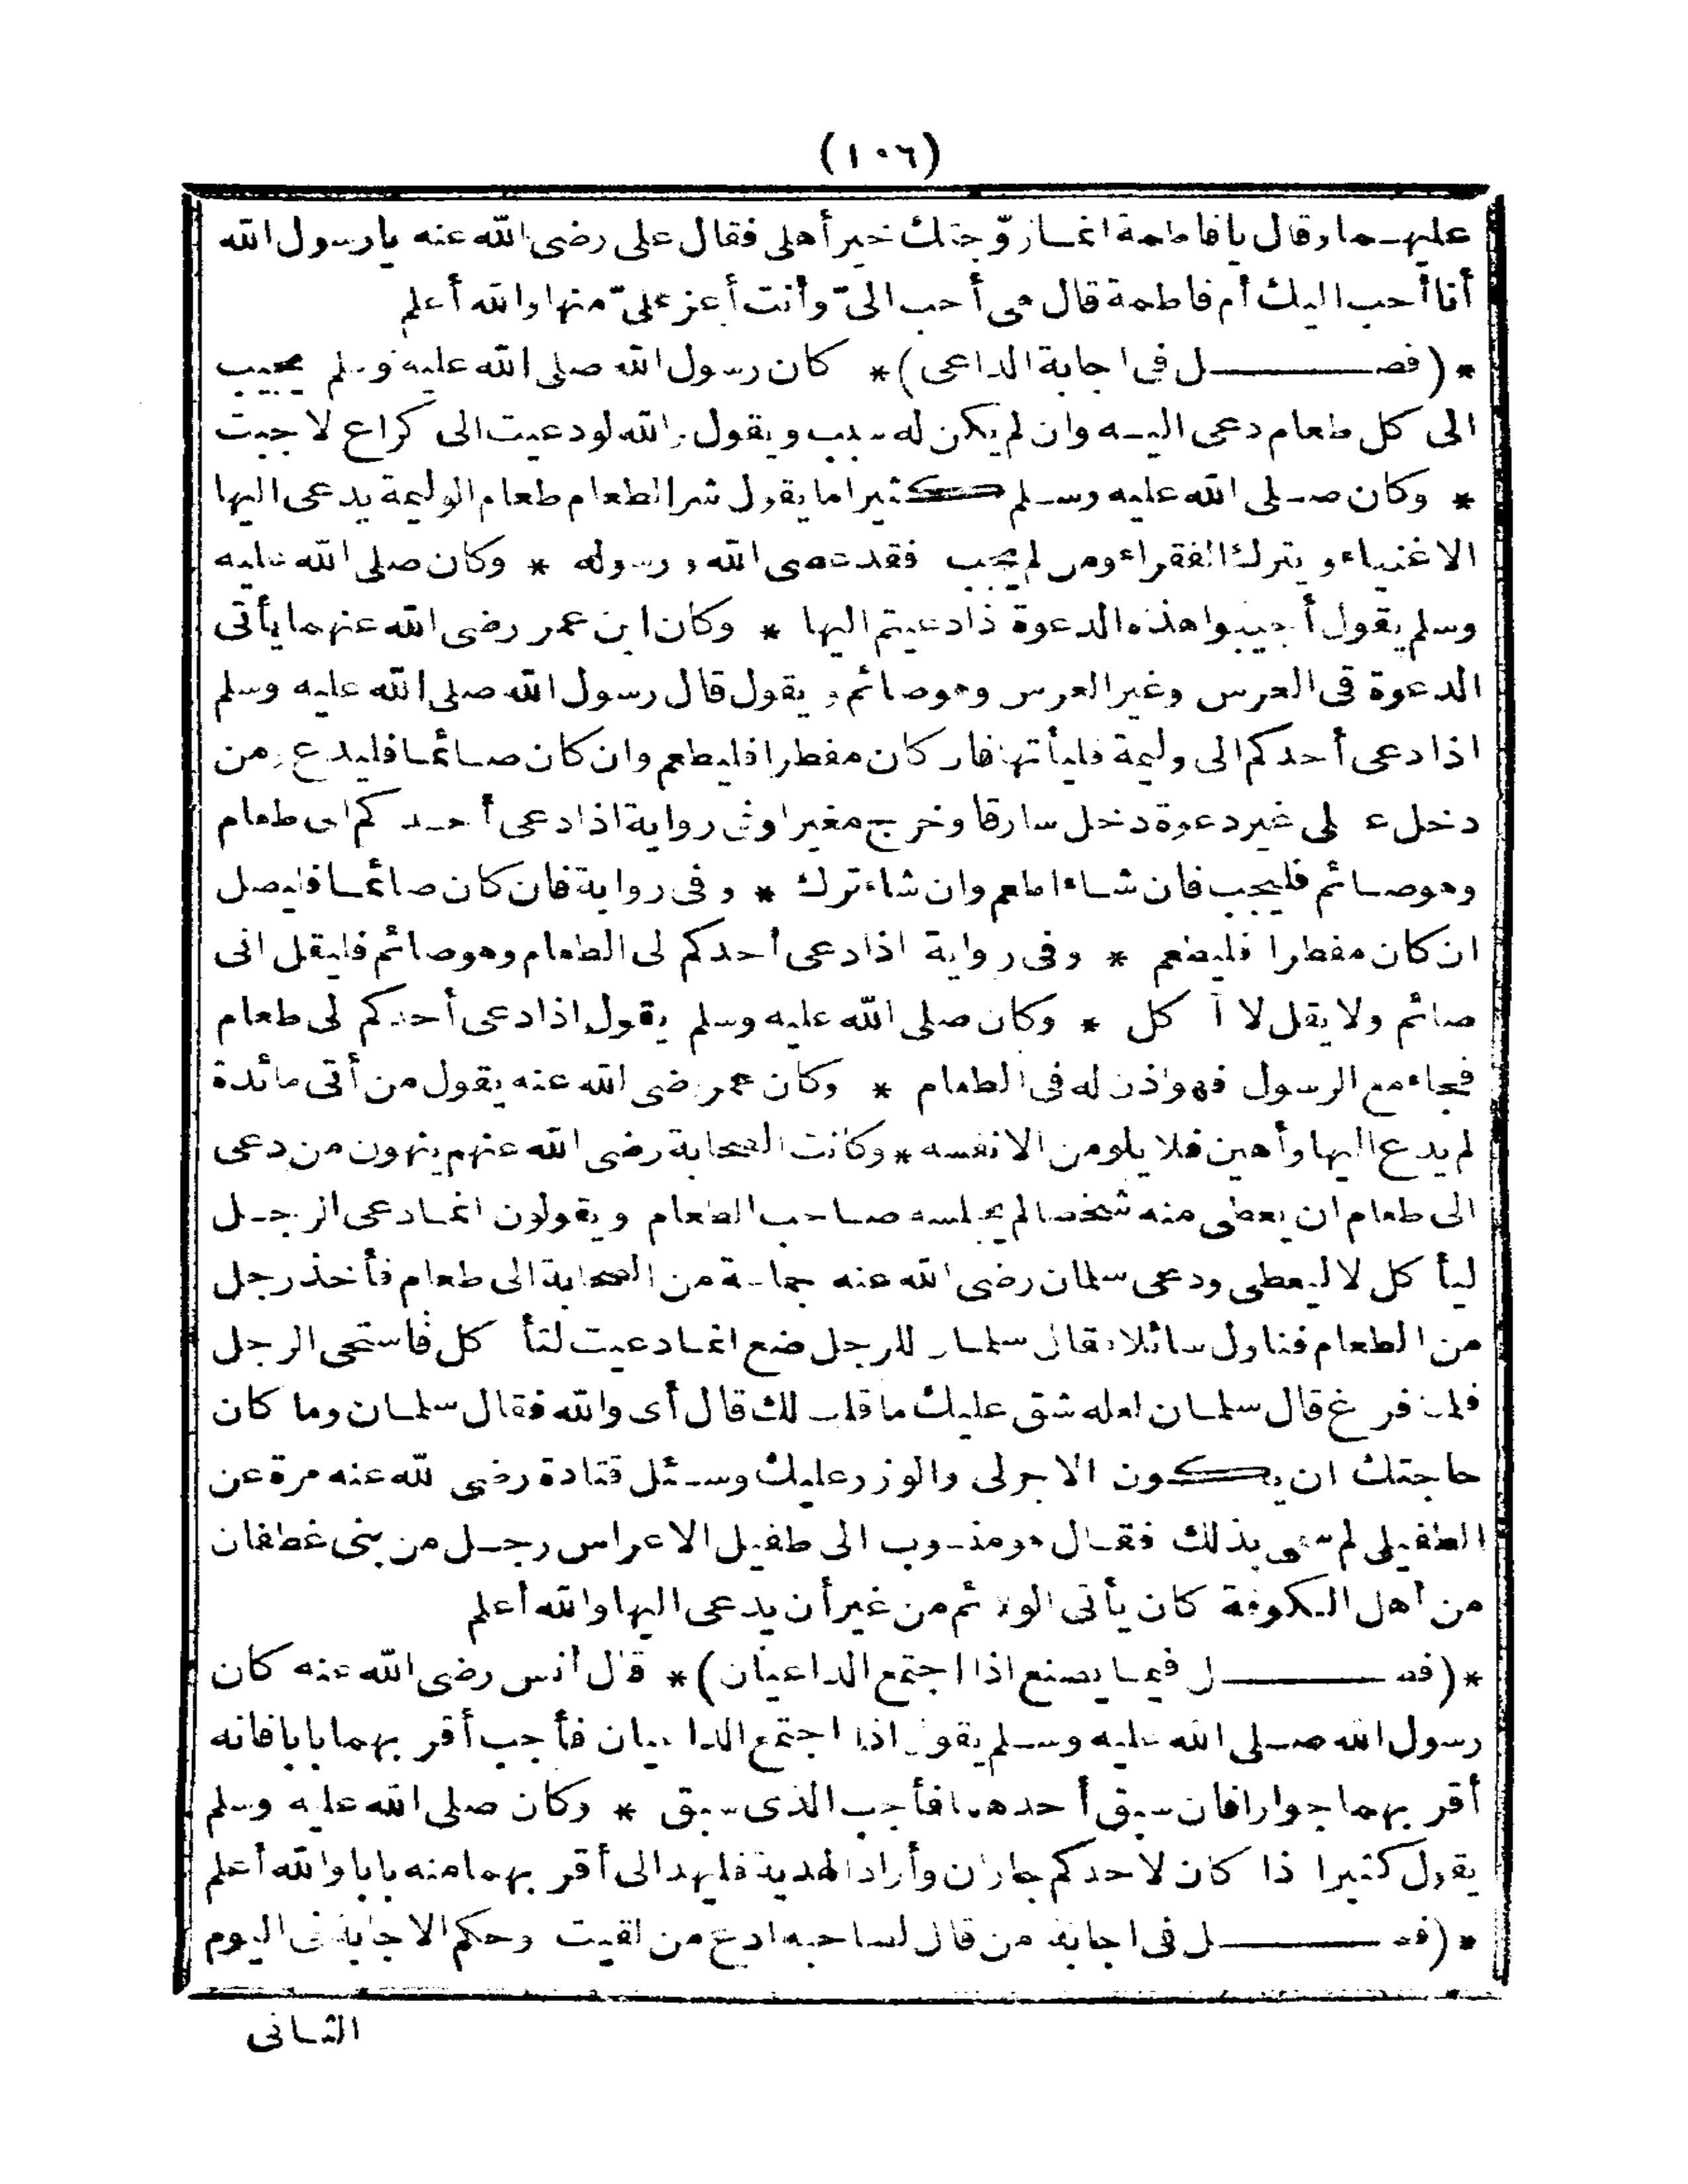 (١٠٦)
عليهما وقال يا فاطمة انما زوّجتك خير أهلى فقال على رضى الله عنه يا رسول الله
أنا أحب اليك أم فاطمة قال هى أحب الىّ وأنت أعز علىّ منها والله أعلم
* (فصـــل فى اجابة الداعى) * كان رسول الله صلى الله عليه وسلم يجيب
الى كل طعام دعى اليه وان لم يكن له سبب ويقول والله لو دعيت الى كراع لاجبت
* وكان صلى الله عليه وسلم كثيرا ما يقول شر الطعام طعام الوليمة يدعى اليها
الاغنياء ويترك الفقراء ومن لم يجب فقد عصى الله ورسوله * وكان صلى الله عليه
وسلم يقول أجيبوا هذه الدعوة اذا دعيتم اليها * وكان ابن عمر رضى الله عنهما يأتى
الدعوة فى العرس وغير العرس وهو صائم ويقول قال رسول الله صلى الله عليه وسلم
اذا دعى أحدكم الى وليمة فليأتها فان كان مفطرا فليطعم وان كان صائما فليدع ومن
دخل على غير دعوة دخل سارقا وخرج مغيرا وفى رواية اذا دعى أحدكم الى طعام
وهو صائم فليجب فان شاء اطعم وان شاء ترك * وفى رواية فان كان صائما فليصل
ان كان مفطرا فليطعم * وفى رواية اذا دعى أحدكم الى الطعام وهو صائم فليقل انى
صائم ولا يقل لا آكل * وكان صلى الله عليه وسلم يقول اذا دعى أحدكم الى طعام
فجاء مع الرسول فهو اذن له فى الطعام * وكان عمر رضى الله عنه يقول من أتى مائدة
لم يدع اليها وأهين فلا يلومن الا نفسه * وكانت الصحابة رضى الله عنهم ينهون من دعى
الى طعام ان يعطى منه شخصا لم يجلسه صاحب الطعام ويقولون انما دعى الرجل
ليأكل لا ليعطى ودعى سلمان رضى الله عنه جماعة من الصحابة الى طعام فأخذ رجل
من الطعام فناول سائلا فقال سلمان للرجل ضع انما دعيت لتأكل فاستحى الرجل
فلما فرغ قال سلمان لعله شق عليك ما قلت لك قال أى والله فقال سلمان وما كان
حاجتك ان يكون الاجر لى والوزر عليك وسئل قتادة رضى الله عنه مرة عن
الطفيلى لم سمى بذلك فقال هو منسوب الى طفيل الاعراس رجل من بنى غطفان
من أهل الكوفة كان يأتى الولائم من غير أن يدعى اليها والله أعلم
* (فصـــل فيما يصنع اذا اجتمع الداعيان) * قال أنس رضى الله عنه كان
رسول الله صلى الله عليه وسلم يقول اذا اجتمع الداعيان فأجب أقربهما بابا فانه
أقربهما جوارا فان سبق أحدهما فأجب الذى سبق * وكان صلى الله عليه وسلم
يقول كثيرا اذا كان لاحدكم جاران وأراد الهدية فليهد الى أقربهما منه بابا والله أعلم
* (فصـــل فى اجابة من قال لصاحبه ادع من لقيت وحكم الاجابة فى اليوم
الثانى